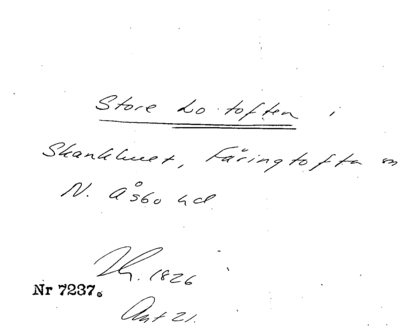 Store Lo toften i
Skankhuset, Fåringtofta sn
N. Åsbo hd
Th. 1826
Nr 7237.
Ant 21.